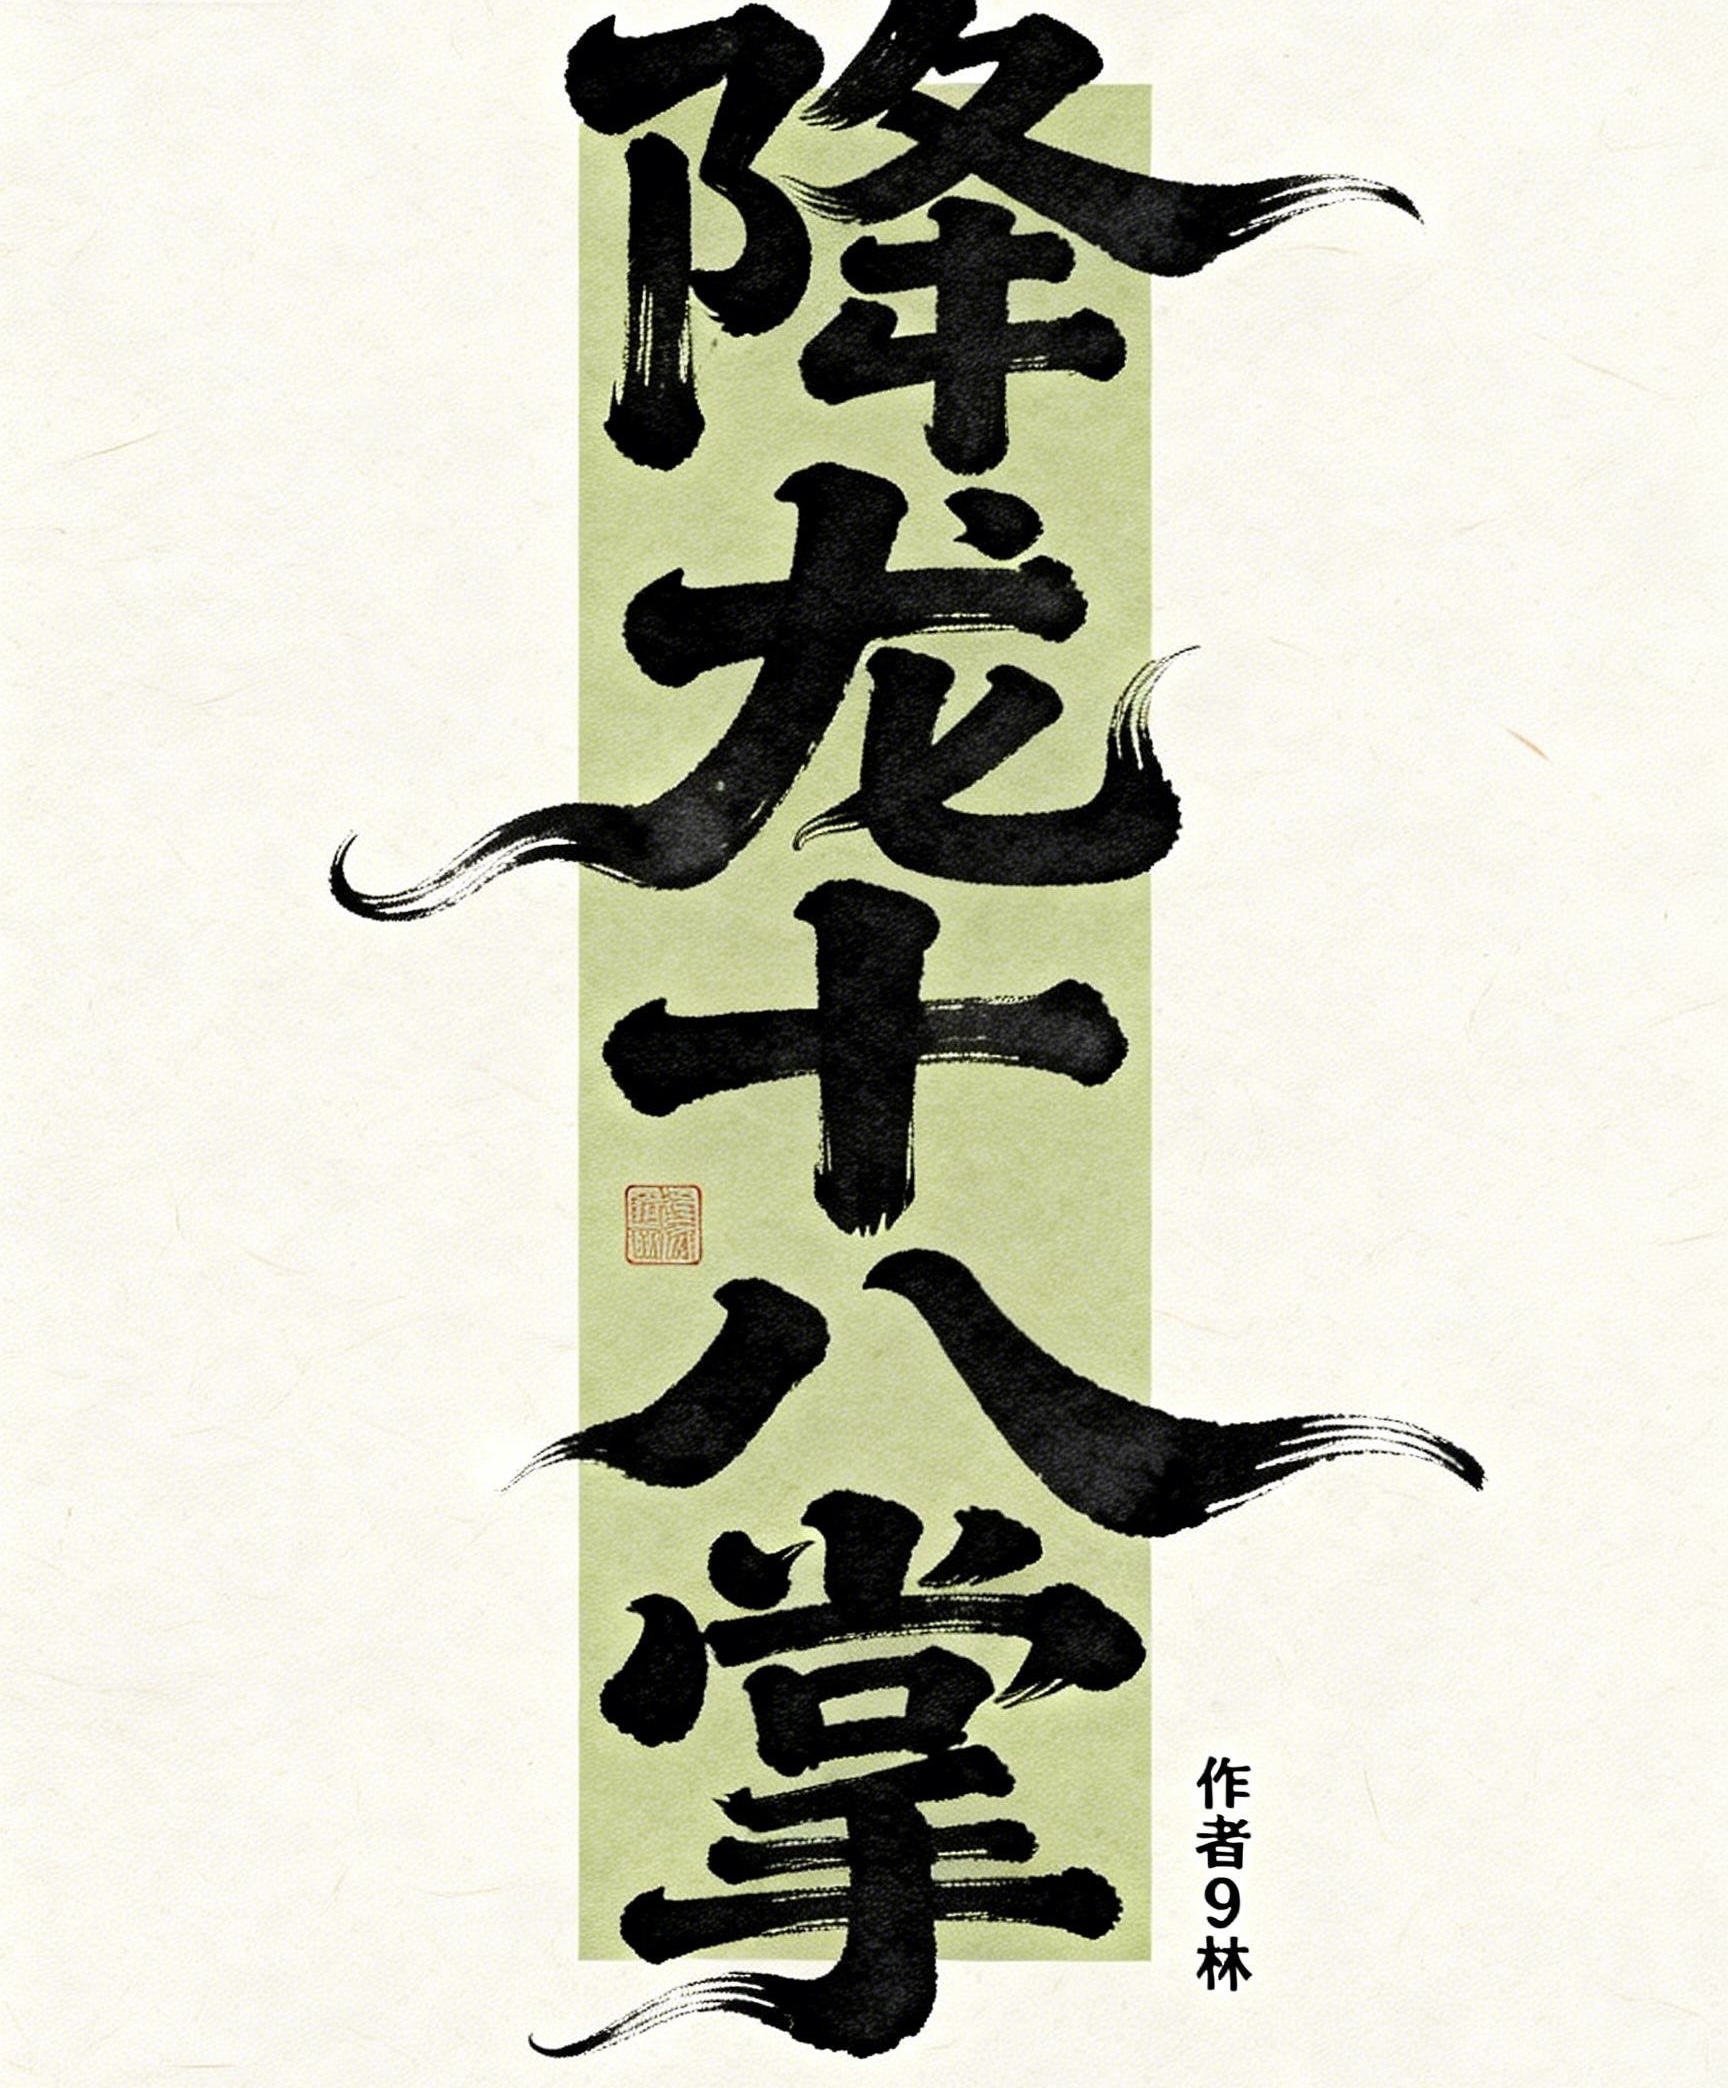 降龙十八掌
作者9林